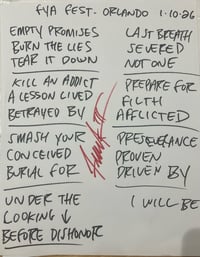 FYA FEST. ORLANDO 1.10.26
EMPTY PROMISES
BURN THE LIES
TEAR IT DOWN
KILL AN ADDICT
A LESSON LIVED
BETRAYED BY
SMASH YOUR
CONCEIVED
BURIAL FOR
UNDER THE
LOOKING ↓
BEFORE DISHONOR
LAST BREATH
SEVERED
NOT ONE
PREPARE FOR
FILTH
AFFLICTED
PERSEVERANCE
PROVEN
DRIVEN BY
I WILL BE